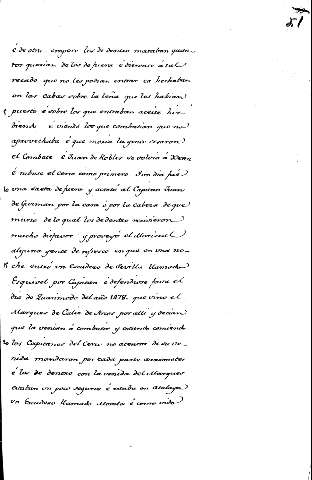 51
é de otra empero los de dentro mataban quan
tos querian de los de fuera é dieronse á tal
recado que no les podian entrar ca hechaban
en las cabas sobre la leña que les habian
puesto é sobre los que entraban aceite hir-
biendo é viendo los que combatian que no
aprovechaba é que moria la gente dexaron
el Combate é Juan de Robles se volvió á Xerez
é tubose el cerco como primero. Un dia fué
10 una saeta de fuera y acertó al Capitan Juan
de Guzman por la cara ó por la cabeza de que
murió de lo qual los de dentro recibieron
mucho disfavor y proveyó el Mariscal
alguna gente de refresco en que en una no-
15 che entró un Caballero de Sevilla llamado
Esquivel por Capitan é defendióse fasta el
dia de Quasimodo del año 1478. que vino el
Marques de Caliz de Arcos por alli y decian
que la venian á combatir y estando comiendo
20 los Capitanes del Cerco no acuerto de su ve-
nida mandaron por cada parte
é los de dentro con la venida del Marques
estaban un poco seguros é estaba en atalaya
un Escudero llamado é como vido